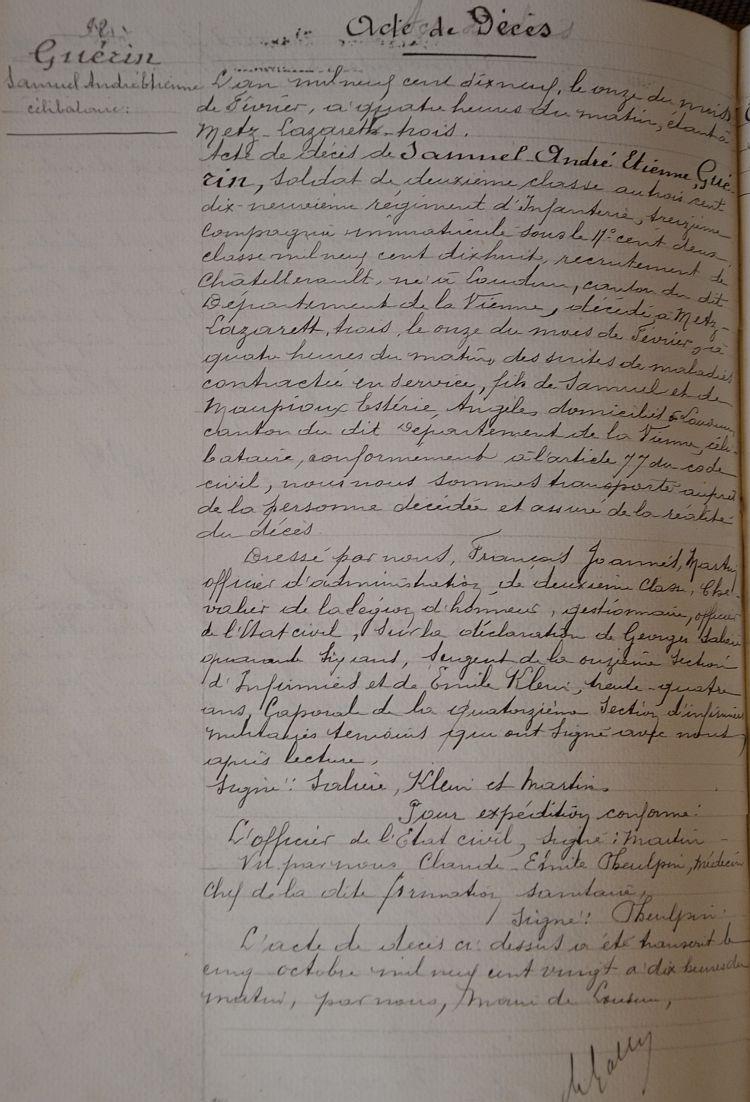 Acte de Décès
Guérin
Samuel André Etienne
célibataire:
L'an mil neuf cent dix neuf, le onze du mois
de Février, à quatre heures du matin, étant à
Metz-Lazarett-trois.
Acte de décès de Samuel-André Etienne Gué-
rin, soldat de deuxième classe au trois cent
dix-neuvième régiment d'Infanterie, treizième
compagnie immatriculé sous le n° cent deux
classe mil neuf cent dix huit, recrutement de
Châtellerault, né à Loudun, canton du dit
Département de la Vienne, décédé à Metz-
Lazarett, trois, le onze du mois de Février, à
quatre heures du matin, des suites de maladies
contractée en service, fils de Samuel et de
Maupioux Angèles domiciliés à Loudun,
canton du dit Département de la Vienne, céli-
bataire, conformément à l'article 77 du code
civil, nous nous sommes transporté auprès
de la personne décédée et assuré de la réalité
du décès.
Dressé par nous, François Joannès, Martin,
officier d'administration de deuxième classe, Che-
valier de la Légion d'honneur, gestionnaire, officier
de l'Etat civil, sur la déclaration de Georges
quarante six ans, Sergent de la onzième Section
d'Infirmiers et de Emile Klein, trente-quatre
ans, Caporale de la quatorzième Section d'infirmiers
militaires témoins qui ont signé avec nous
après lecture.
Signé: Klein et Martin.
Pour expédition conforme:
L'officier de l'Etat civil, signé: Martin-
Vu par nous, Claude-Emile Theulpin, Médecin
Chef de la dite formation sanitaire,
Signé: Theulpin.
L'acte de décès ci dessus a été transcrit le
cinq octobre mil neuf cent vingt à dix heures du
matin, par nous, Maire de Loudun,